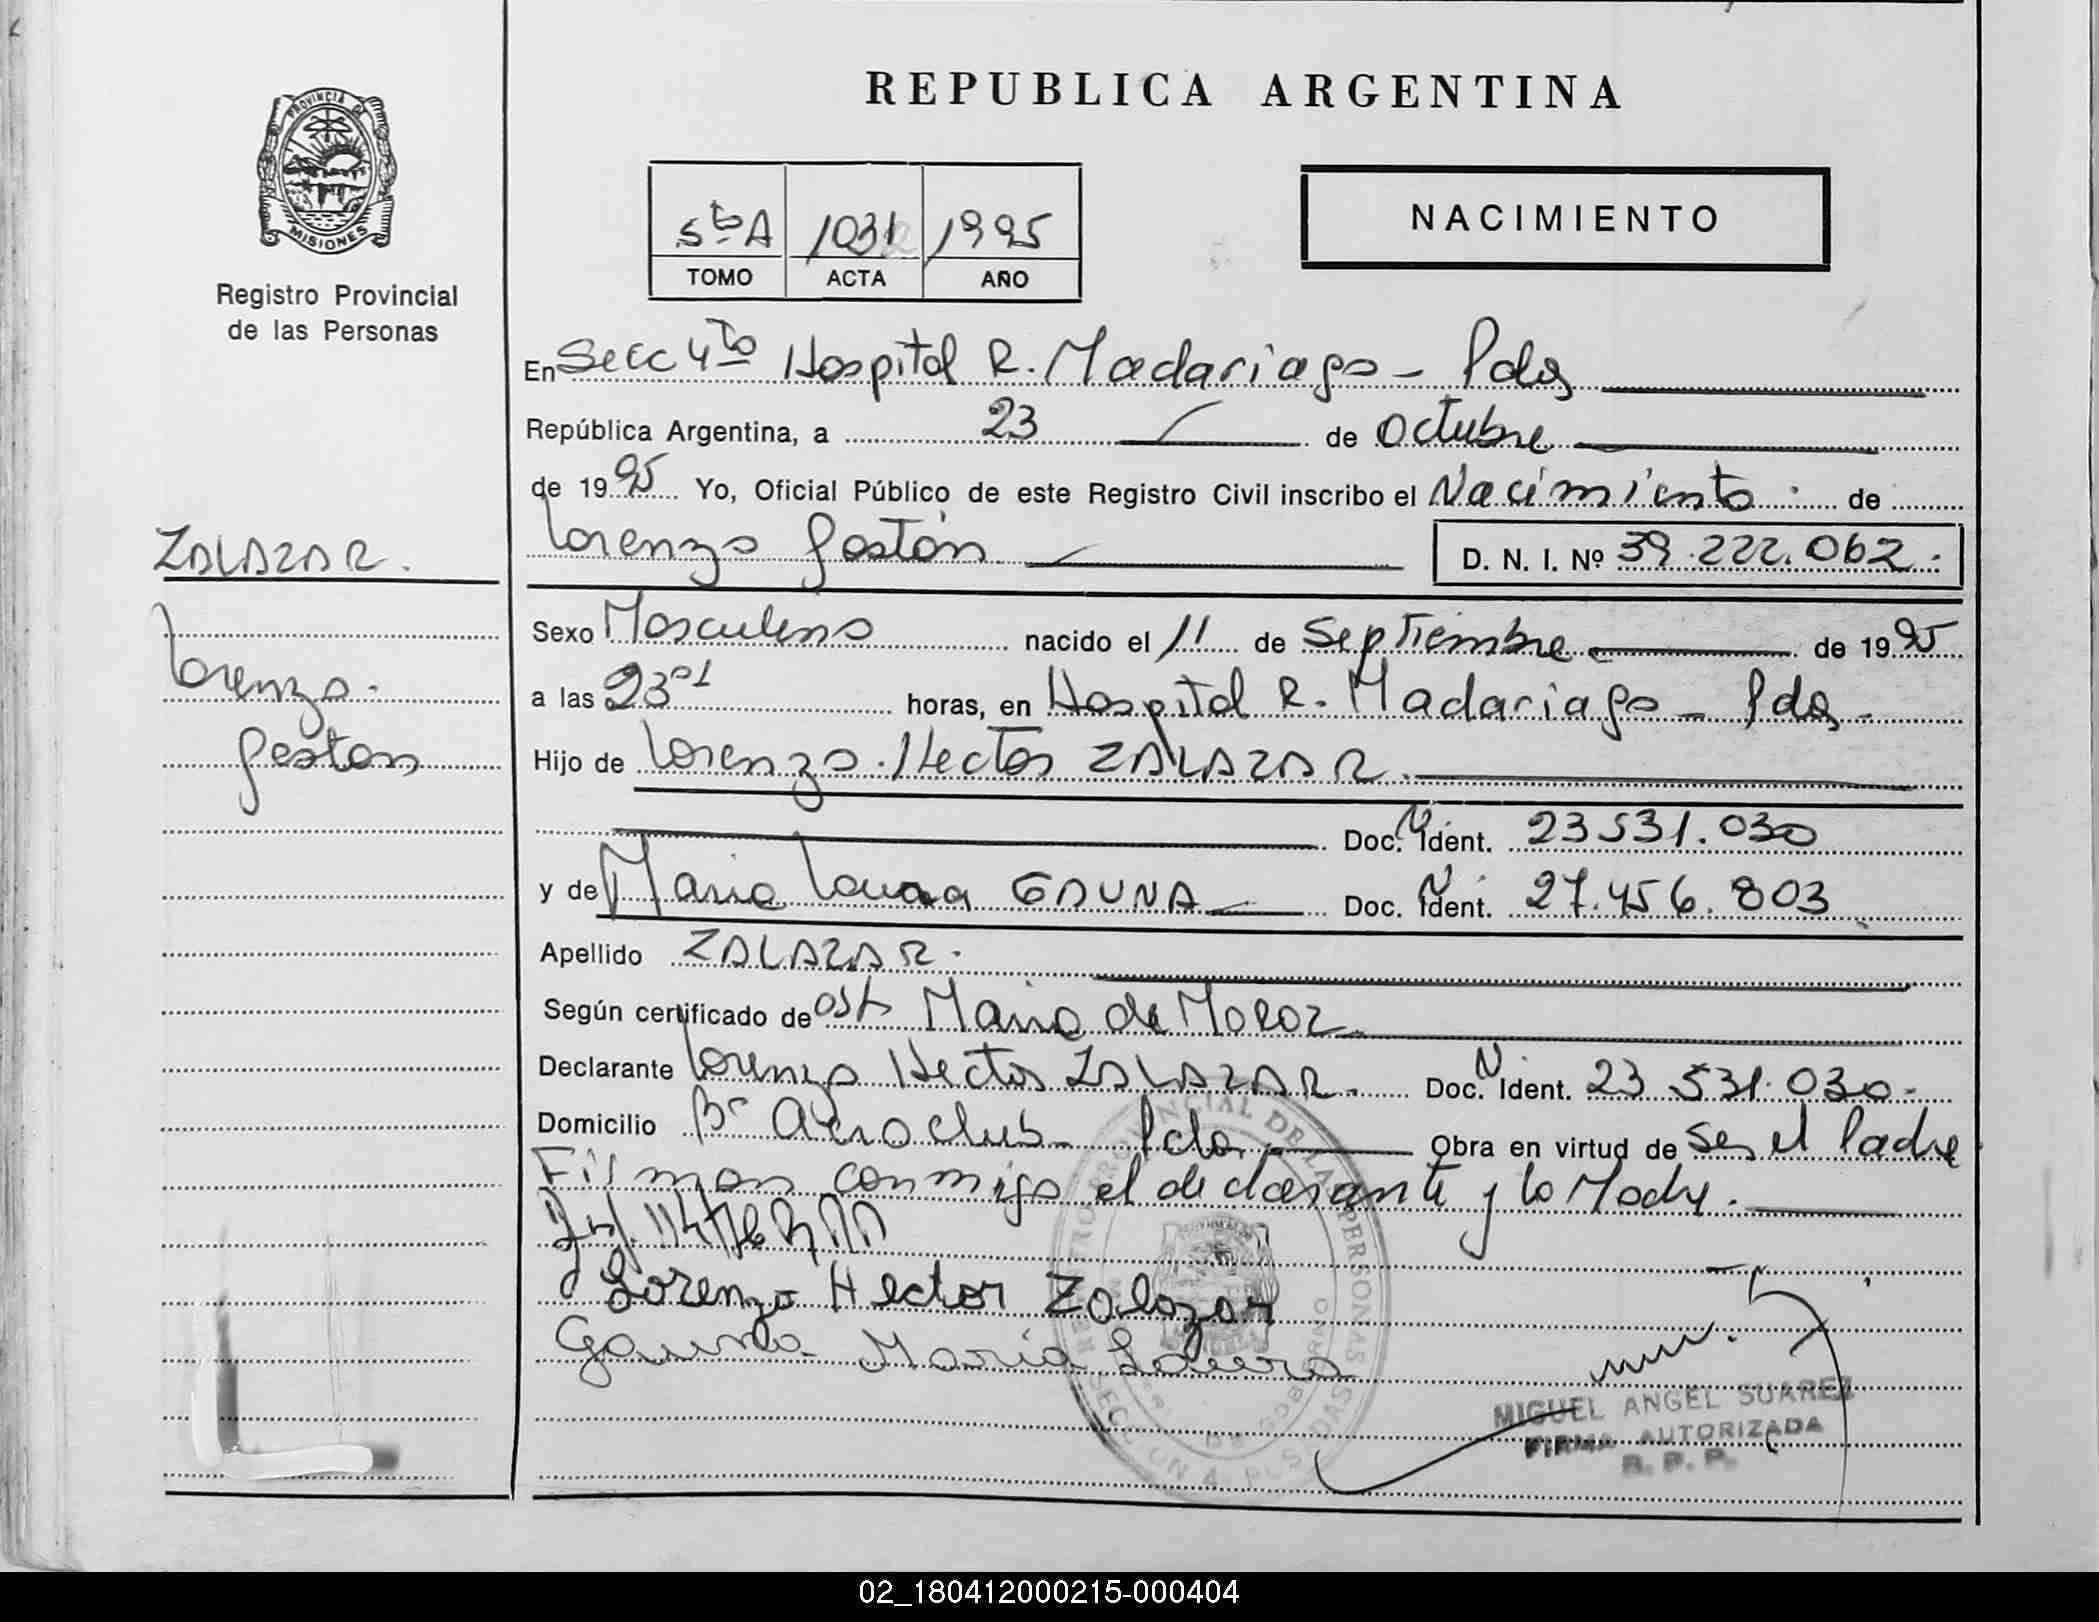 PROVINCIA DE
MISIONES
Registro Provincial
de las Personas
ZALAZAR.
Lorenzo
Gaston
REPUBLICA ARGENTINA
5toA 1031 1995
TOMO ACTA AÑO
NACIMIENTO
En Secc 4to Hospital R. Madariaga - Pdas
República Argentina, a 23 de Octubre
de 1995 Yo, Oficial Público de este Registro Civil inscribo el Nacimiento de
Lorenzo Gastón D. N. I. Nº 39.222.062.
Sexo Masculino nacido el 11 de Septiembre de 1995
a las 23 01 horas, en Hospital R. Madariaga - Pdas
Hijo de Lorenzo Hector ZALAZAR
Doc. N. Ident. 23531.030
y de Maria Laura GAUNA Doc. N. Ident. 27.456.803
Apellido ZALAZAR.
Según certificado de Obst Maria de MOROZ
Declarante Lorenzo Hector ZALAZAR. Doc. N. Ident. 23 531.030.
Domicilio Bº Aeroclub - Pdas Obra en virtud de Ser el Padre
Firman conmigo el declarante y la Madre.
Lorenzo Hector Zalazar
Gauna Maria Laura
REGISTRO PROVINCIAL DE LAS PERSONAS
MIGUEL ANGEL SUAREZ
FIRMA AUTORIZADA
R. P. P.
02_180412000215-000404